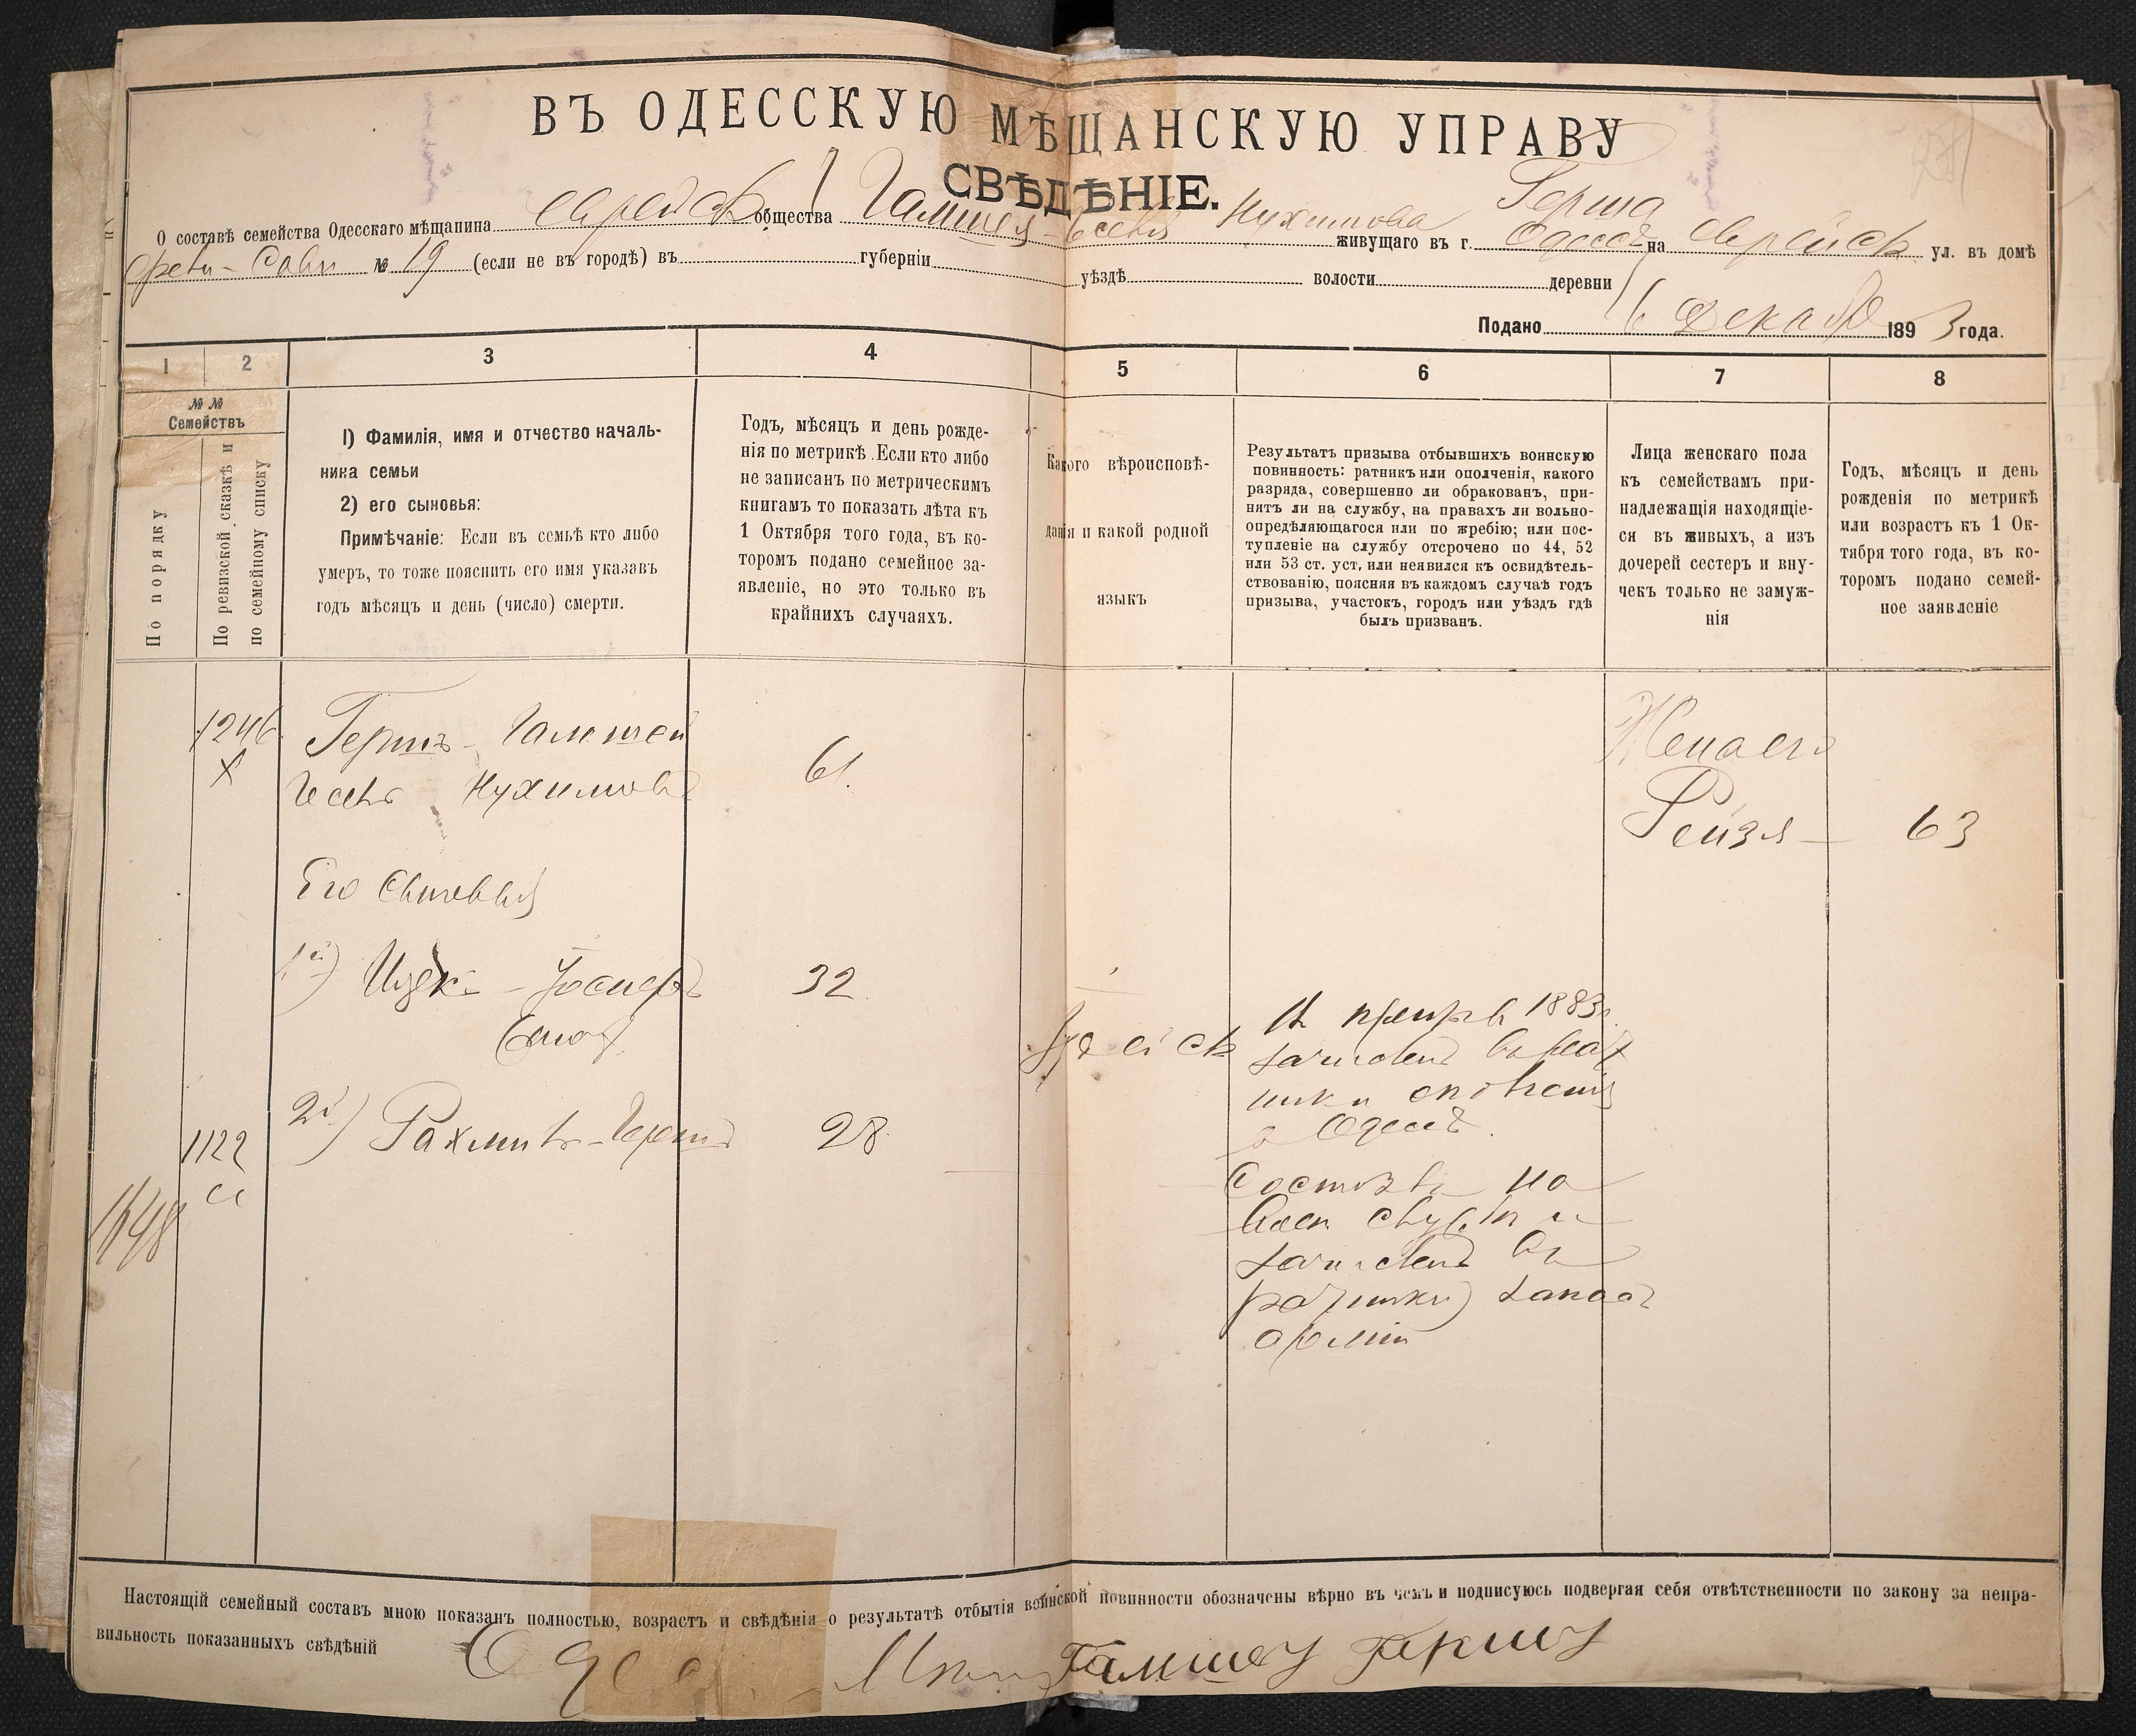 ВЪ ОДЕССКУЮ МѢЩАНСКУЮ УПРАВУ
СВѢДѢНІЕ.
О составѣ семейства Одесскаго мѣщанина еврейск общества Гамшея Нухимова Герша живущаго въ г. Одессѣ на еврейск ул. въ домѣ
№ 19 (если не въ городѣ) въ губерніи уѣздѣ волости деревни
Подано 6 Декабр 1893 года.
1 2 3 4 5 6 7 8
№ №
Семействъ
По порядку
По ревизской сказкѣ и
по семейному списку
1) Фамилія, имя и отчество началь-
ника семьи
2) его сыновья:
Примѣчаніе: Если въ семьѣ кто либо
умеръ, то тоже пояснить его имя указавъ
годъ мѣсяцъ и день (число) смерти.
Годъ, мѣсяцъ и день рожде-
нія по метрикѣ. Если кто либо
не записанъ по метрическимъ
книгамъ то показать лѣта къ
1 Октября того года, въ ко-
торомъ подано семейное за-
явленіе, но это только въ
крайнихъ случаяхъ.
Какого вѣроисповѣ-
данія и какой родной
языкъ
Результатъ призыва отбывшихъ воинскую
повинность: ратникъ или ополченія, какого
разряда, совершенно ли обракованъ, при-
нятъ ли на службу, на правахъ ли вольно-
опредѣляющагося или по жребію; или пос-
тупленіе на службу отсрочено по 44, 52
или 53 ст. уст. или неявился къ освидѣтель-
ствованію, поясняя въ каждомъ случаѣ годъ
призыва, участокъ, городъ или уѣздъ гдѣ
былъ призванъ.
Лица женскаго пола
къ семействамъ при-
надлежащія находящіе-
ся въ живыхъ, а изъ
дочерей сестеръ и вну-
чекъ только не замуж-
нія
Годъ, мѣсяцъ и день
рожденія по метрикѣ
или возрастъ къ 1 Ок-
тября того года, въ ко-
торомъ подано семей-
ное заявленіе
1246 Гершъ Гамшей 61. Жена его
х Нухимовъ
Рейзя 63
Его Сыновья
1й) Ицекъ-Іосифъ 32
въ призывъ 1883г.
Іудейск зачисленъ въ рат
ники ополченія
в Одессѣ.
2й) Рахмиль-Герш 28
1122
1648
Состоялъ на
воен службѣ и
зачисленъ въ
запаса
арміи
Настоящій семейный составъ мною показанъ полностью, возрастъ и свѣдѣнія о результатѣ отбытія воинской повинности обозначены вѣрно въ чемъ и подписуюсь подвергая себя отвѣтственности по закону за непра-
вильность показанныхъ свѣдѣній
Гамшей Герш